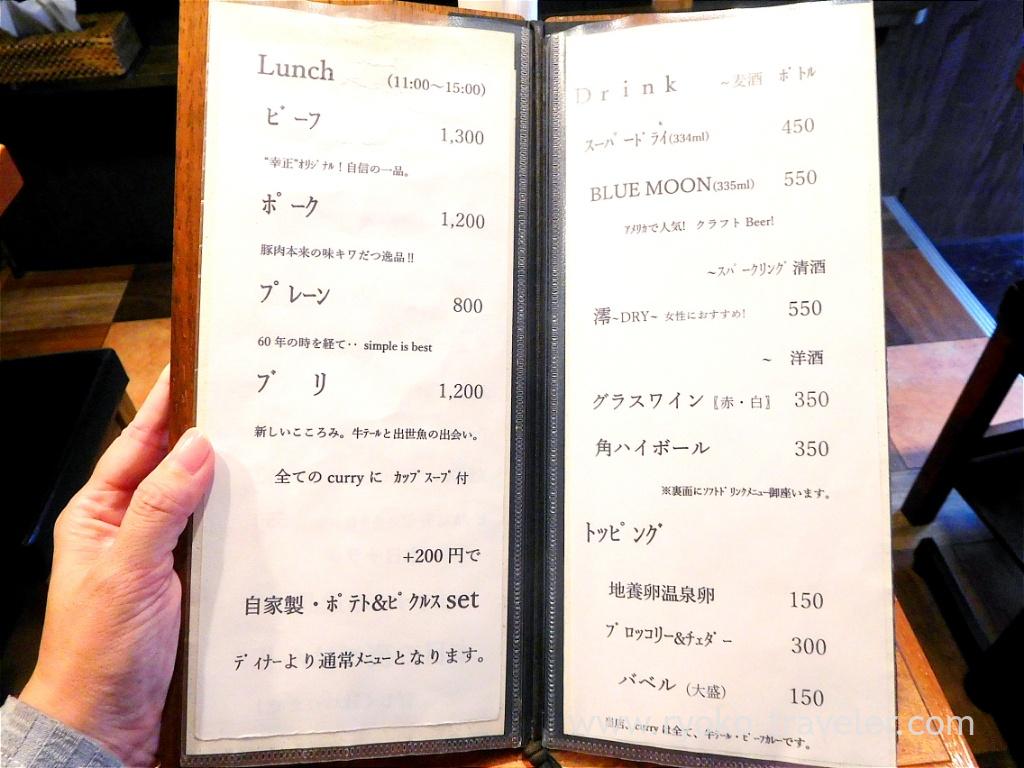 Lunch (11:00～15:00)
ビーフ 1,300
"幸正"オリジナル！自信の一品。
ポーク 1,200
豚肉本来の味キワだつ逸品!!
プレーン 800
60年の時を経て‥ simple is best
ブリ 1,200
新しいこころみ。牛テールと出世魚の出会い。
全ての curry に カップスープ付
+200 円で
自家製・ポテト&ピクルス set
ディナーより通常メニューとなります。
Drink ～麦酒 ボトル
スーパードライ(334ml) 450
BLUE MOON(335ml) 550
アメリカで人気! クラフト Beer!
～スパークリング清酒
澪~DRY~ 女性におすすめ! 550
～ 洋酒
グラスワイン〖赤・白〗 350
角ハイボール 350
※裏面にソフトドリンクメニュー御座います。
トッピング
地養卵温泉卵 150
ブロッコリー&チェダー 300
バベル（大盛） 150
当店、curry は全て、牛テール・ビーフカレーです。
www.ryoko-traveler.com